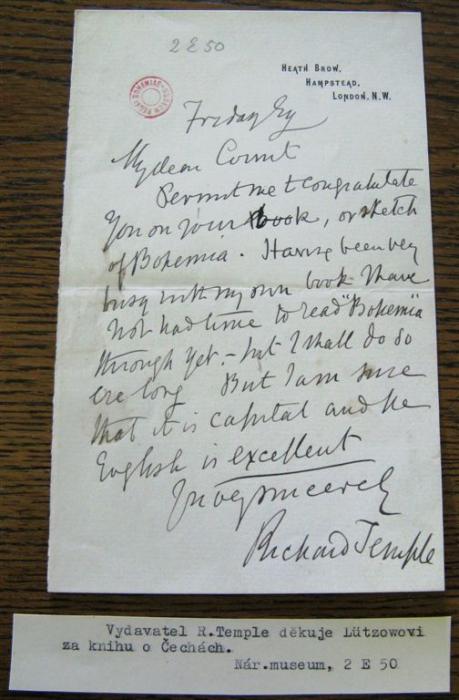 2 E 50
HEATH BROW,
HAMPSTEAD,
LONDON, N.W.
Friday Ev
My dear Count
Permit me to congratulate
you on your book, or sketch
of Bohemia. Having been very
busy with my own book I have
not had time to read "Bohemia"
through yet. - but I shall do so
ere long But I am sure
that it is capital and the
English is excellent
Yrs very sincerely
Richard Temple
Vydavatel R.Temple děkuje Lützowovi
za knihu o Čechách.
Nár.museum, 2 E 50